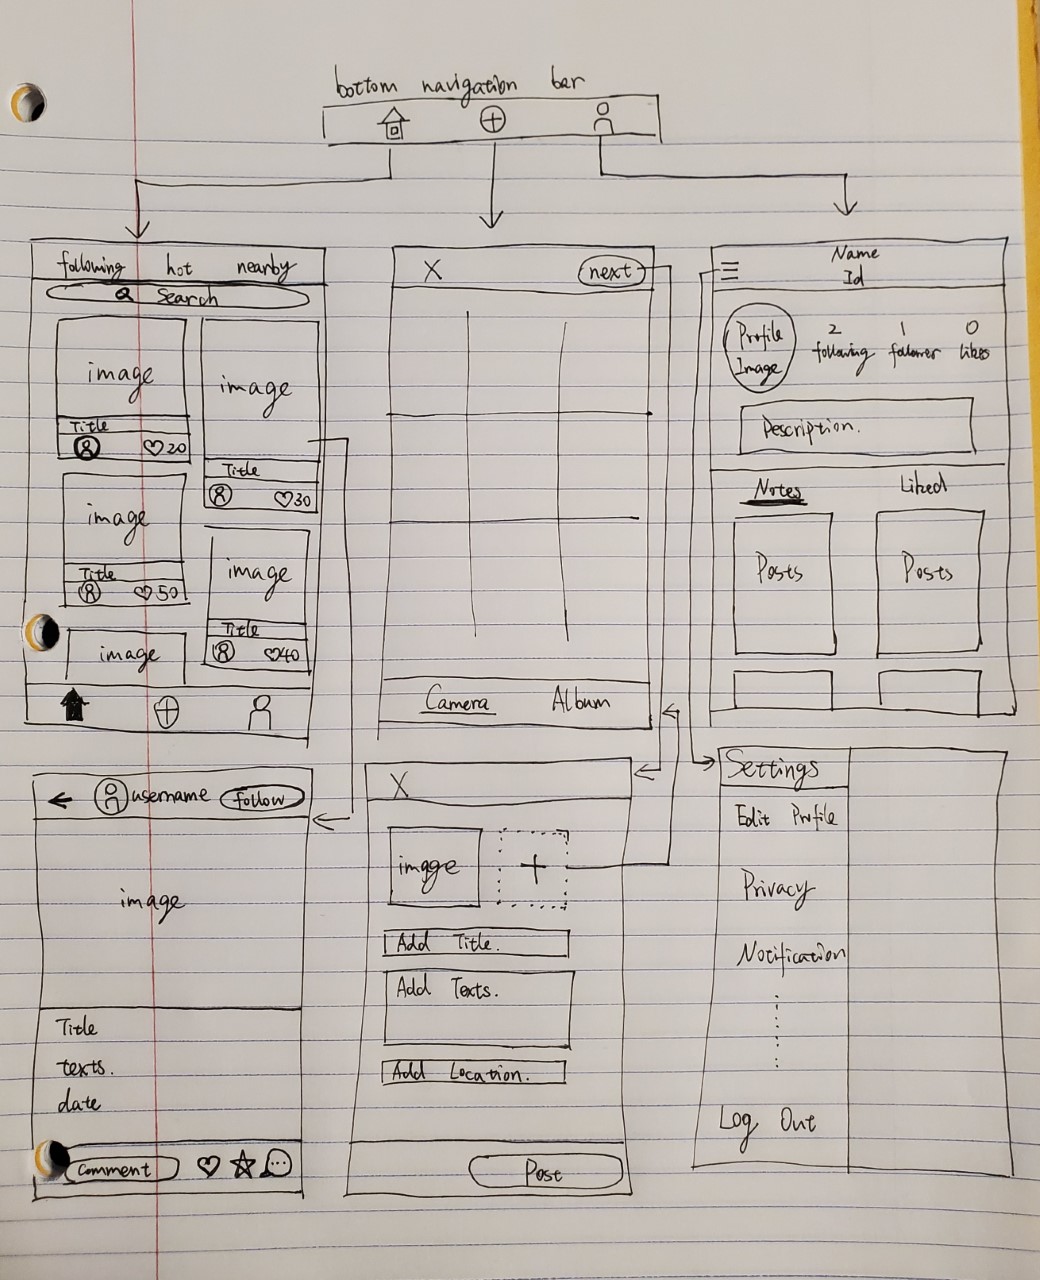 bottom navigation bar
following hot nearby
Search
image
Title
20
image
Title
30
image
Title
50
image
Title
40
image
X next
Camera Album
Name
Id
Profile
Image
2
following
1
follower
0
likes
Description.
Notes Liked
Posts Posts
username follow
image
Title
texts.
date
Comment
X
image
Add Title.
Add Texts.
Add Location.
Post
Settings
Edit Profile
Privacy
Notification
Log Out